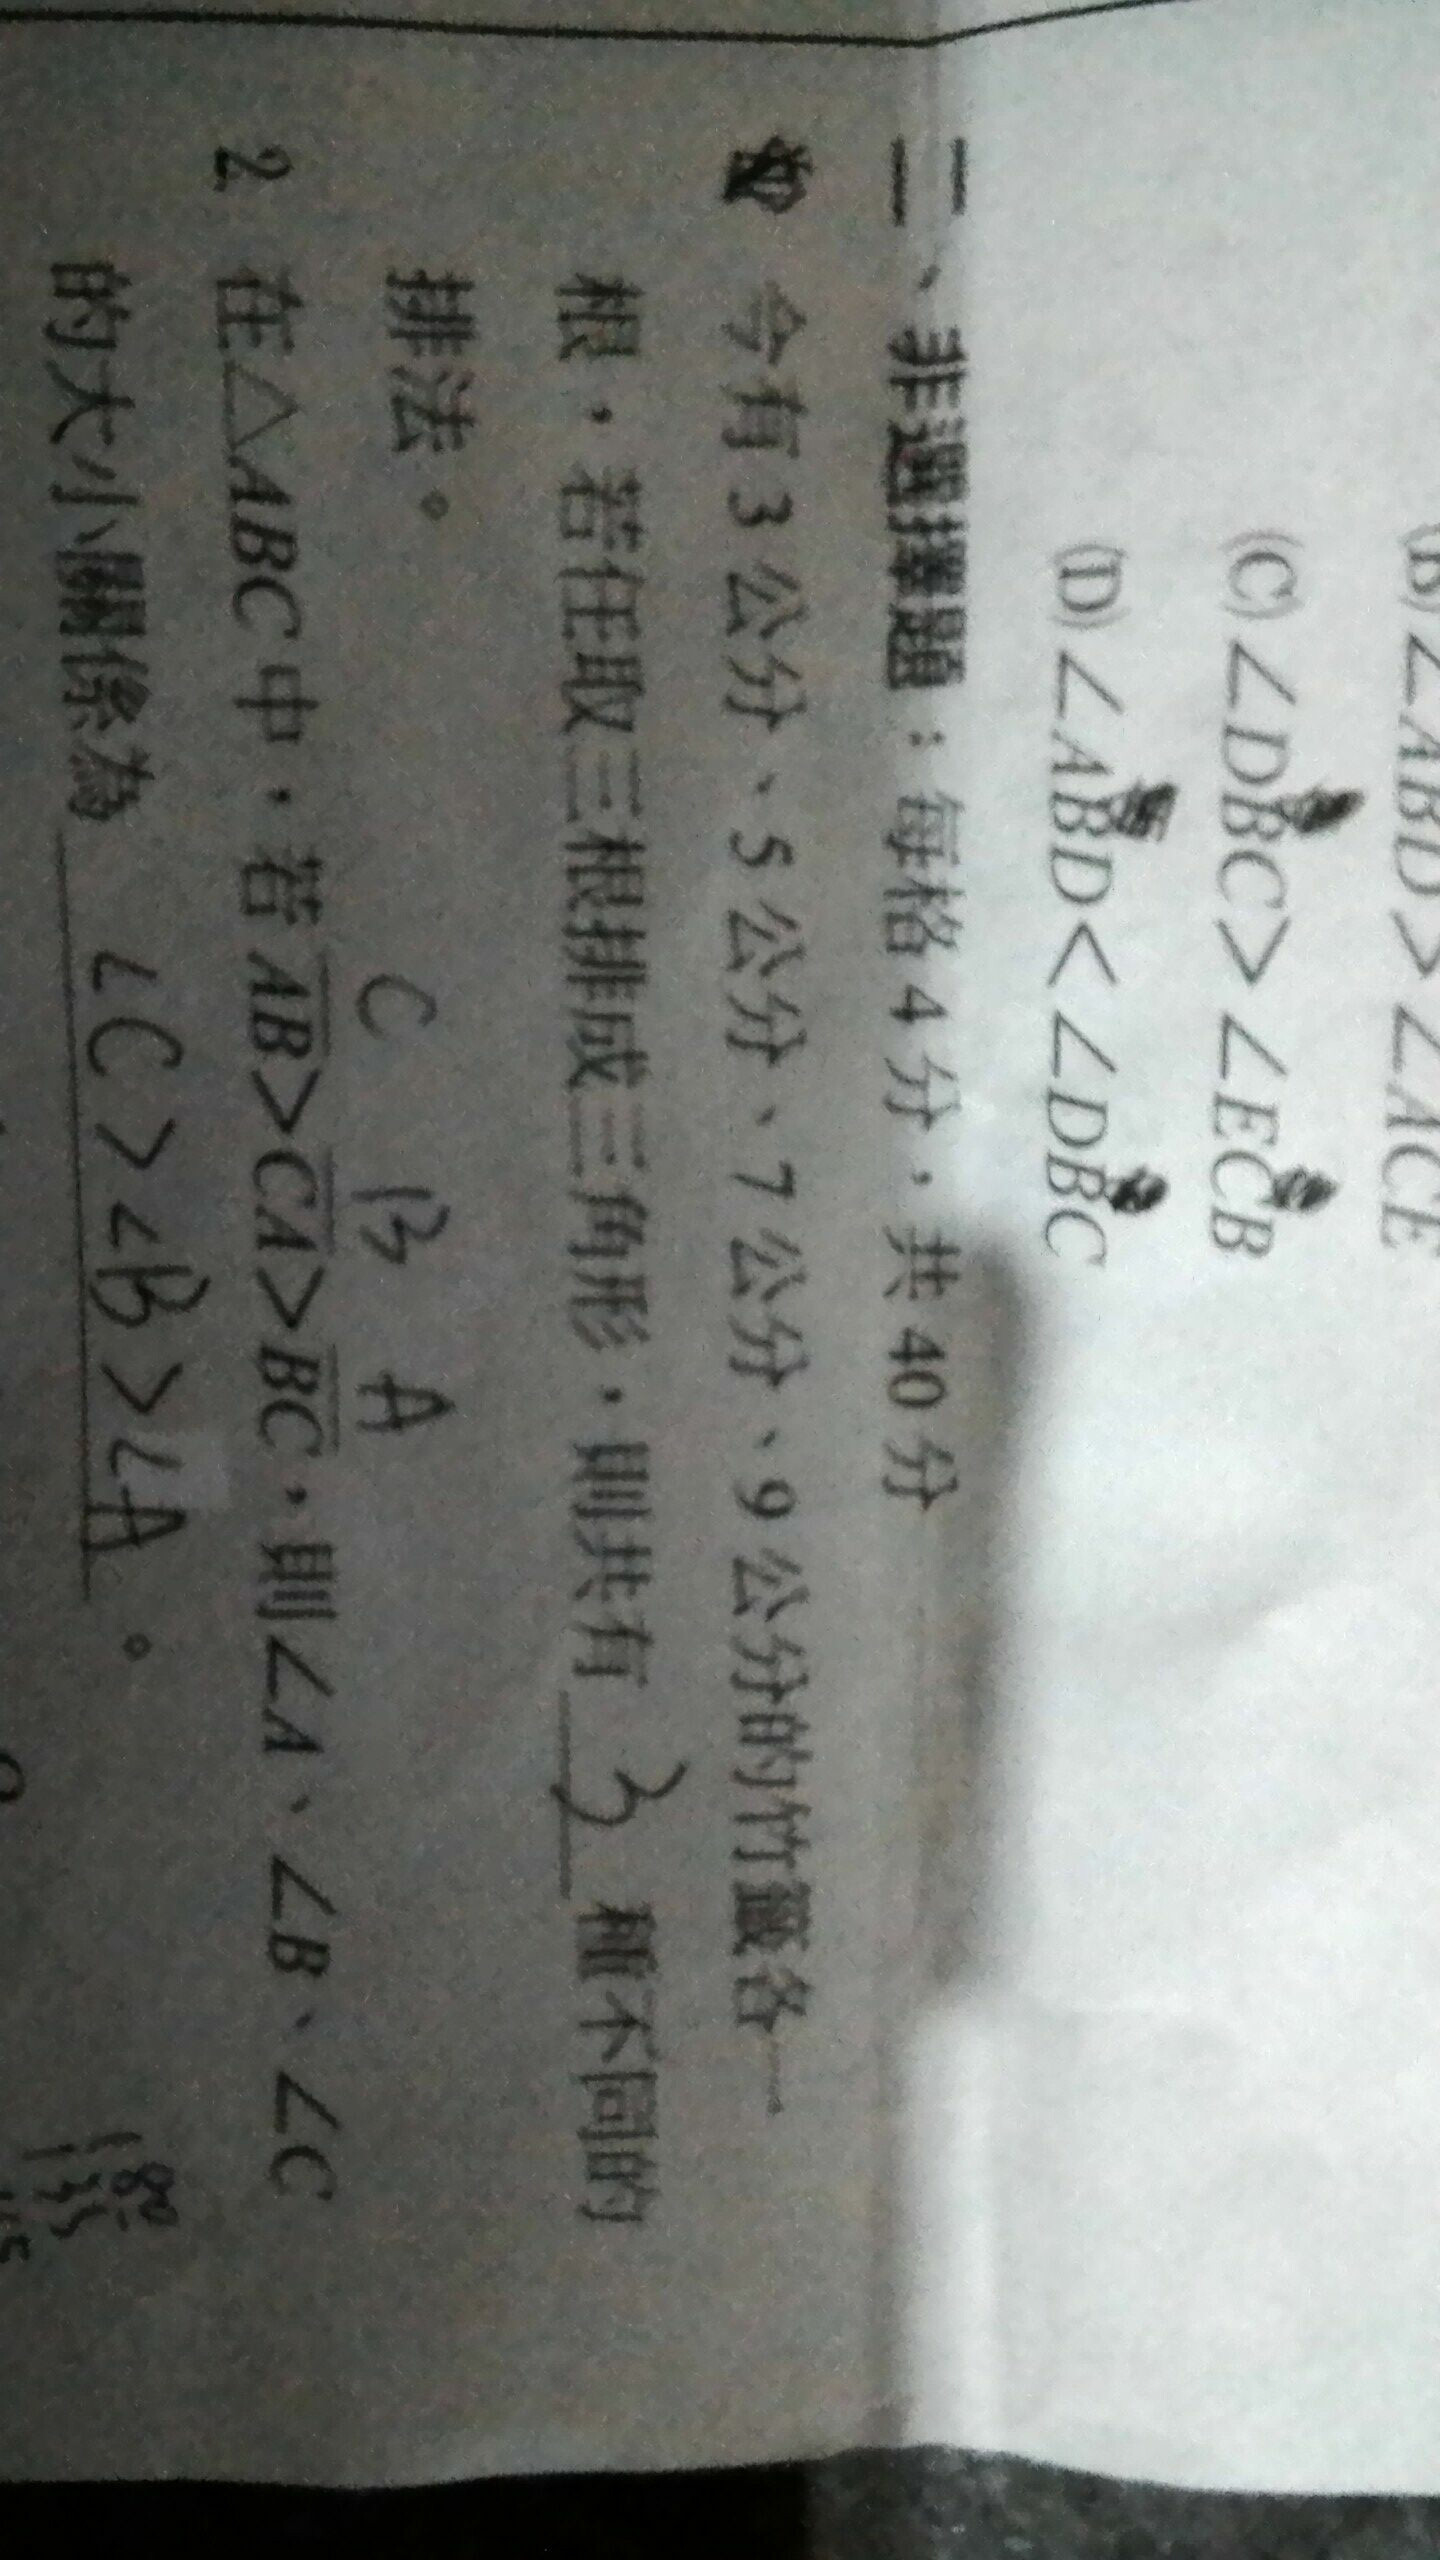 (B) ∠ABD > ∠ACE
(C) ∠DBC > ∠ECB
(D) ∠ABD < ∠DBC
二、非選擇題：每格 4 分，共 40 分
今有 3 公分、5 公分、7 公分、9 公分的竹籤各一
根，若任取三根排成三角形，則共有 3 種不同的
排法。
C B A
2. 在△ABC 中，若 AB > CA > BC，則∠A、∠B、∠C
的大小關係為 ∠C > ∠B > ∠A 。
180
135